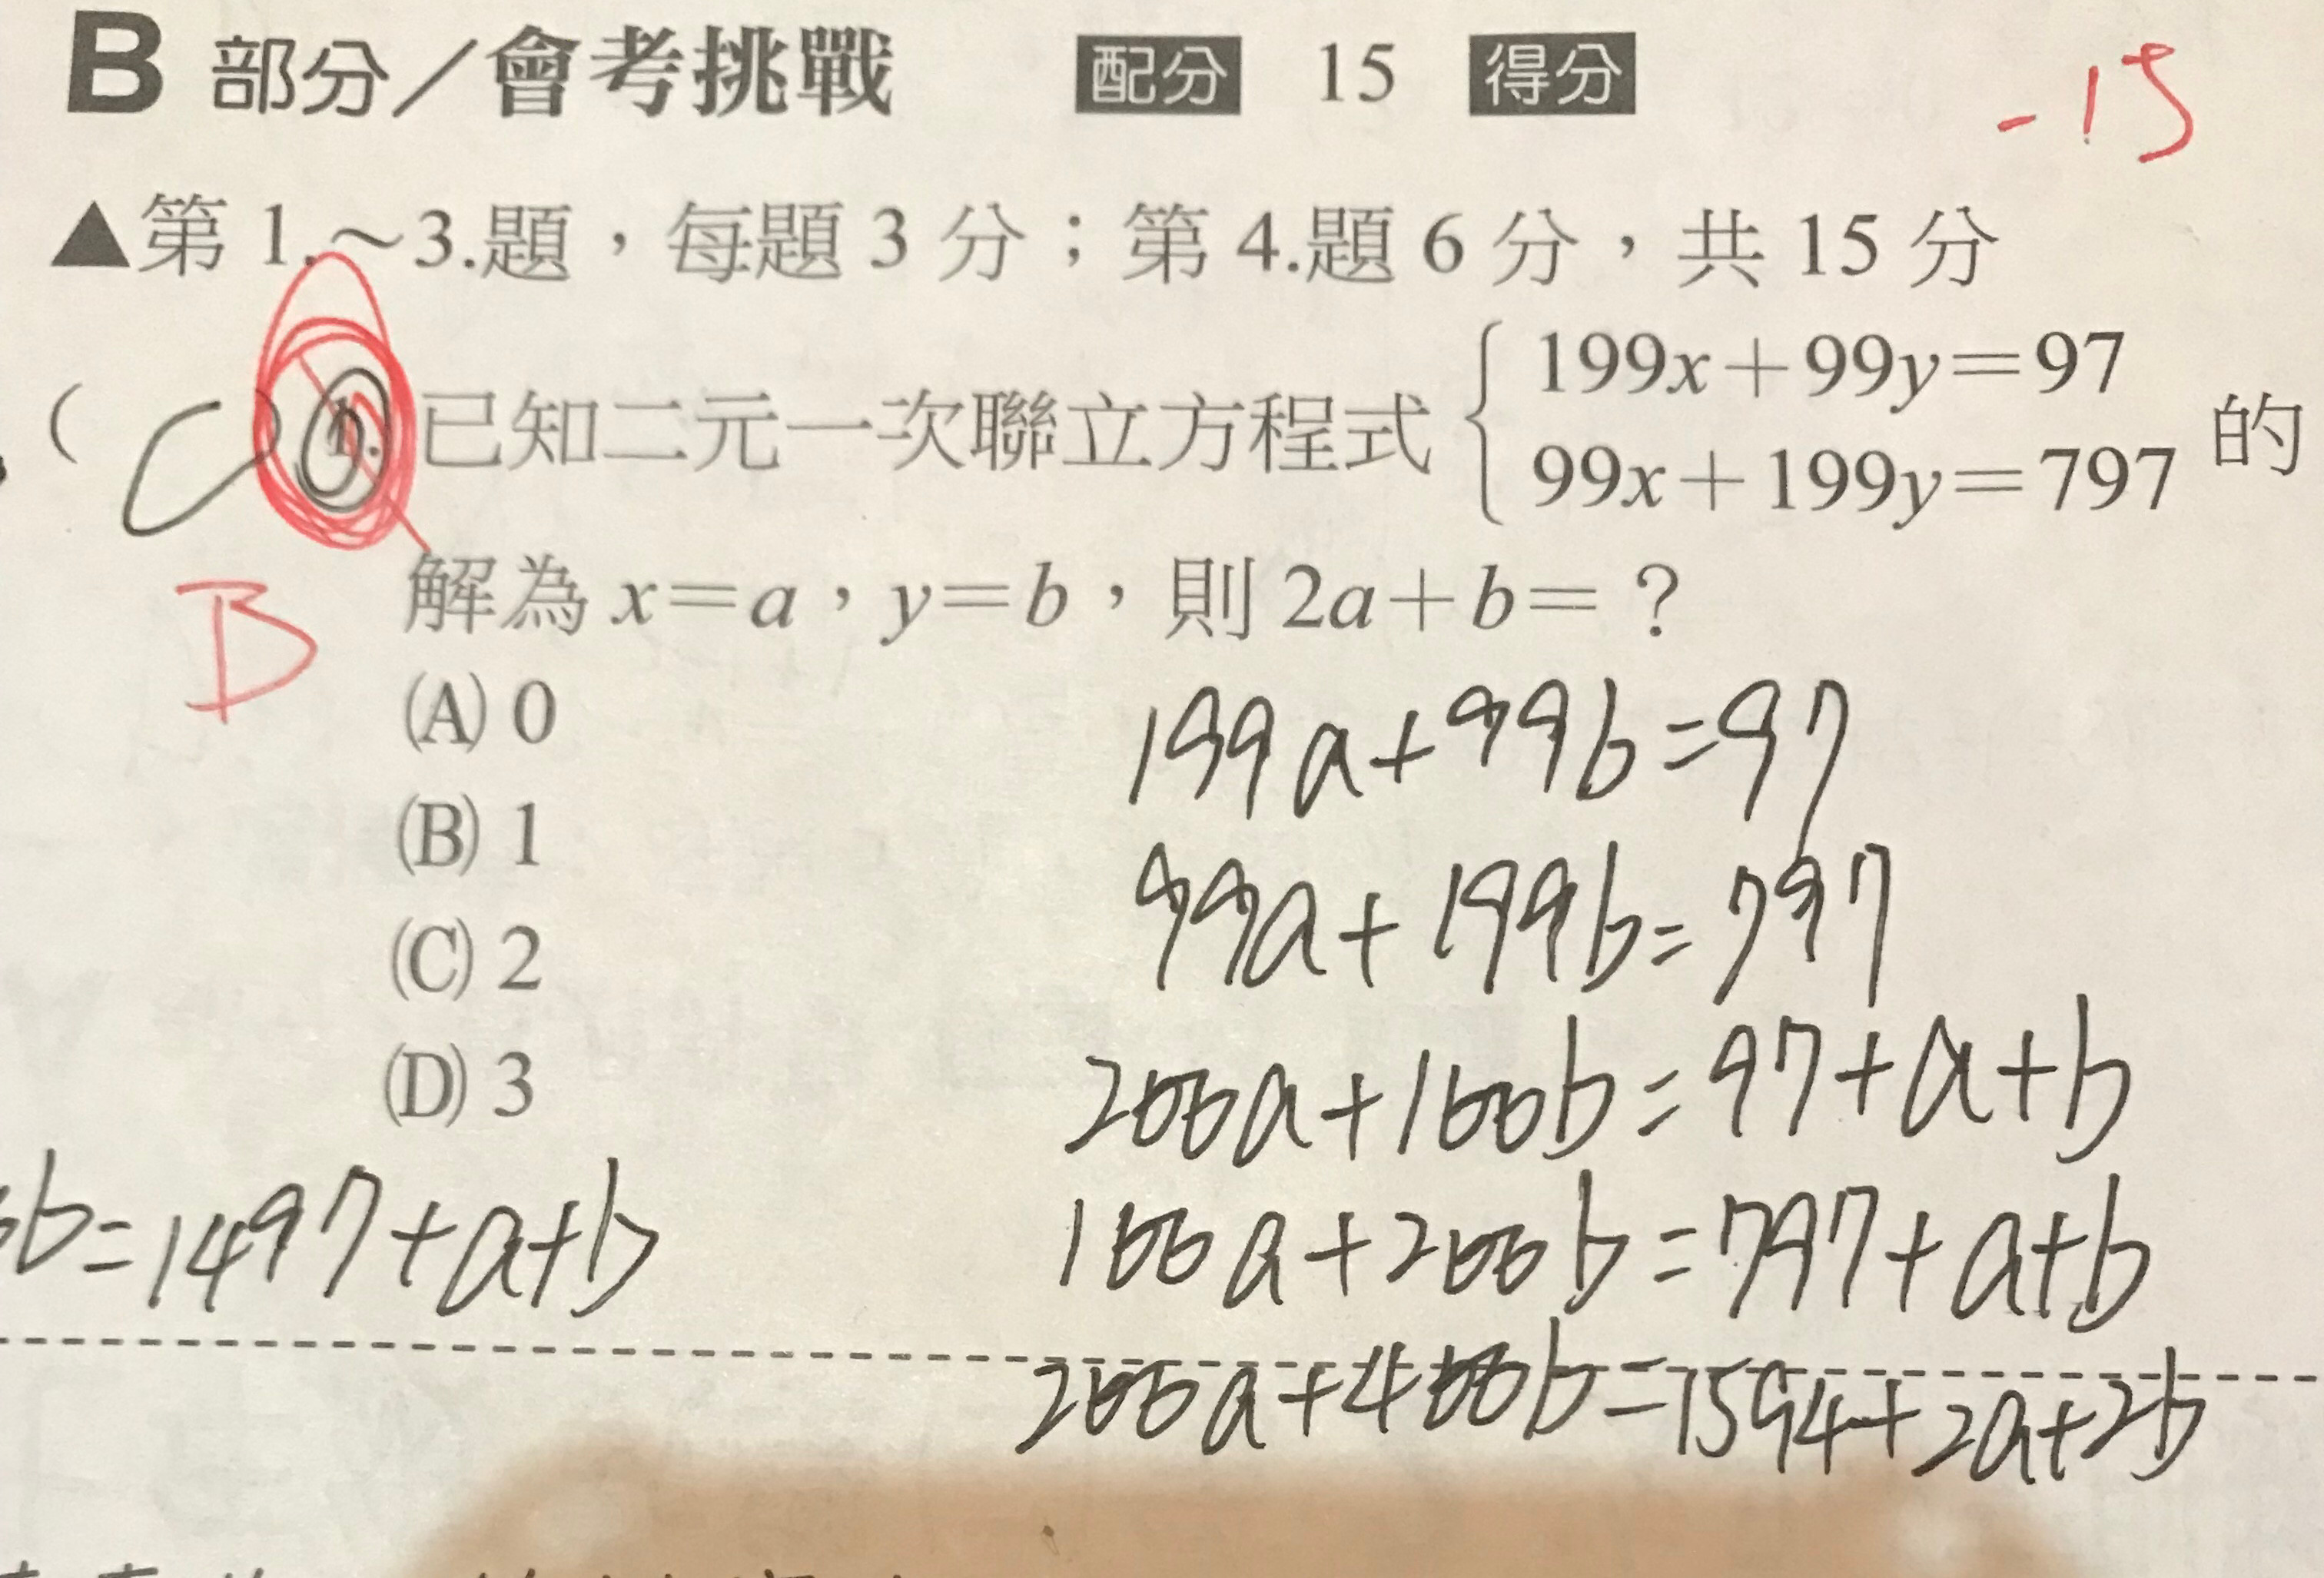 B 部分／會考挑戰 配分 15 得分 -15
▲第 1.～3.題，每題 3 分；第 4.題 6 分，共 15 分
( C ) 1. 已知二元一次聯立方程式 { 199x＋99y＝97
99x＋199y＝797 的
B
解為 x＝a，y＝b，則 2a＋b＝？
(A) 0
(B) 1
(C) 2
(D) 3
199a+99b=97
99a+199b=797
200a+100b=97+a+b
100a+200b=797+a+b
200a+400b=1594+2a+2b
b=1497+a+b